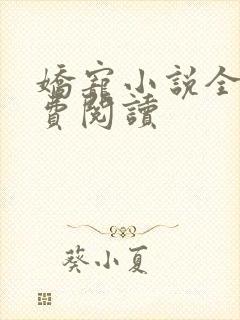 嬌寵小説全
費閱讀
葵小夏